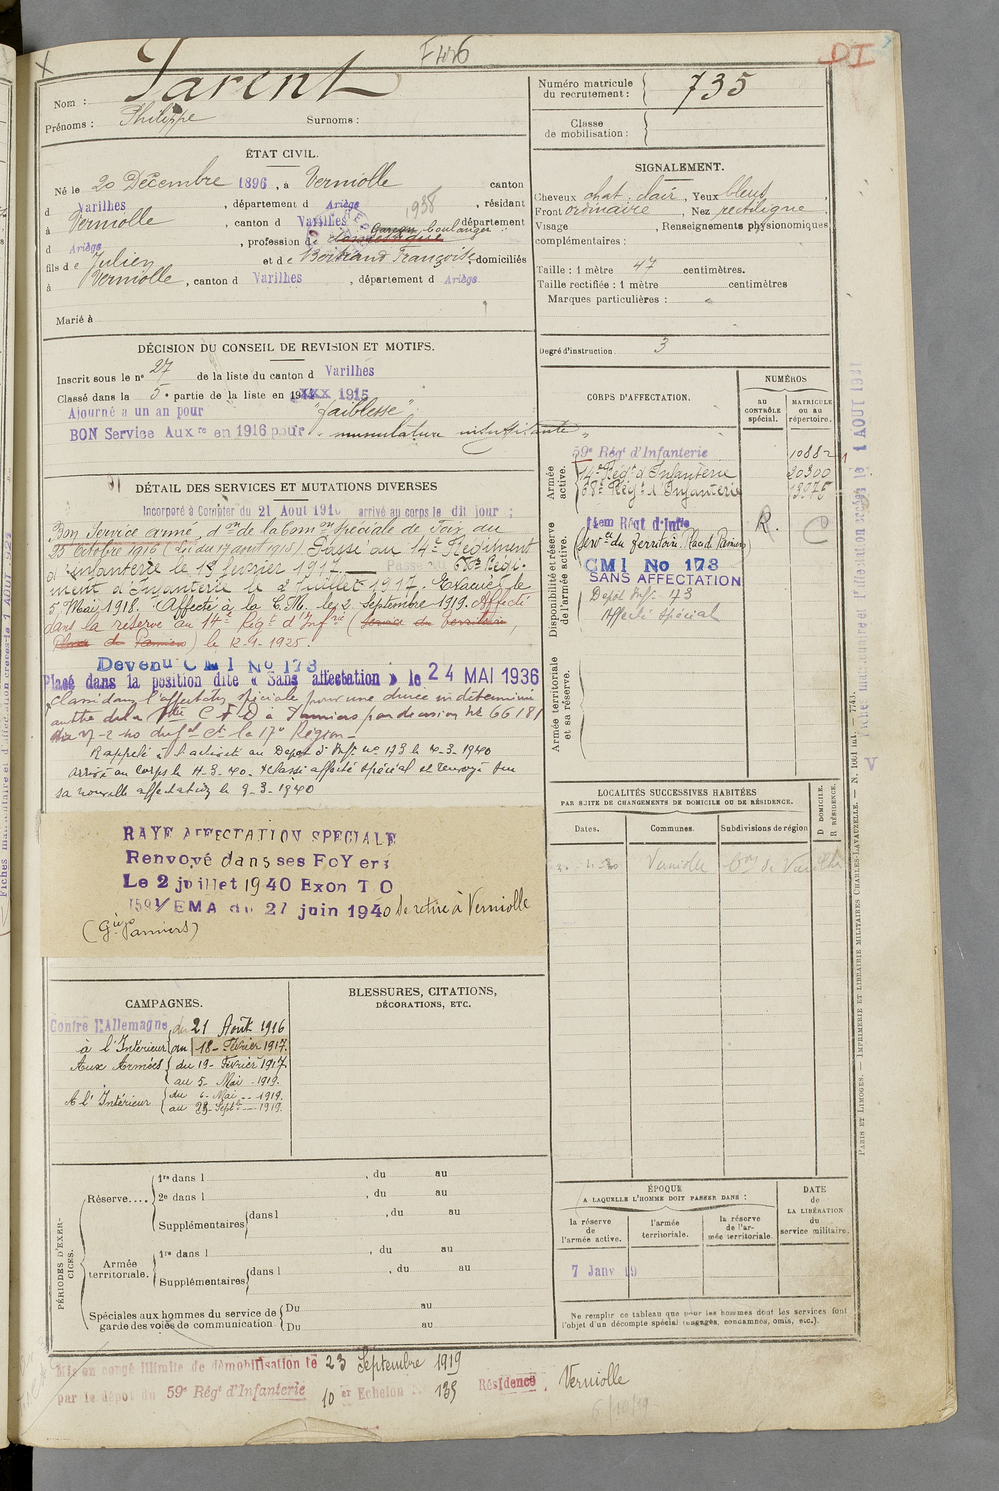 X
F 426
DI
Nom : Parent
Prénoms : Philippe Surnoms :
Numéro matricule du recrutement : 735
Classe de mobilisation :
ÉTAT CIVIL.
Né le 20 Décembre 1896, à Verniolle canton
d Varilhes, département d Ariège, résidant
à Verniolle, canton d Varilhes département
1938
d Ariège, profession de domestique Garçon boulanger
fils de Julien et de Bertrand Françoise, domiciliés
à Verniolle, canton d Varilhes, département d Ariège
Marié à
SIGNALEMENT.
Cheveux chat. clair, Yeux bleus,
Front ordinaire, Nez rectiligne
Visage , Renseignements physionomiques
complémentaires :
Taille : 1 mètre 47 centimètres.
Taille rectifiée : 1 mètre centimètres
Marques particulières :
Degré d'instruction. 3
DÉCISION DU CONSEIL DE REVISION ET MOTIFS.
Inscrit sous le n° 27 de la liste du canton d Varilhes
Classé dans la 5e partie de la liste en 1915
Ajourné a un an pour "faiblesse"
BON Service Auxre en 1916 pour "musculature insuffisante"
DÉTAIL DES SERVICES ET MUTATIONS DIVERSES
Incorporé à Compter du 21 Aout 1916 arrivé au corps le dit jour ;
Bon Service armé, don de la Comon Spéciale de Foix du
25 Octobre 1916 (Loi du 17 août 1915) Passé au 14e Régiment
d'Infanterie le 19 février 1917. Passé au 68e Régi-
ment d'Infanterie le 2 Juillet 1917. Evacué le
5 Mai 1918. Affecté à la C.M. le 2 Septembre 1919. Affecté
dans la réserve au 14e Régt d'Infrie (Service du Territoire,
Place de Pamiers) le 12-4-1925.
Devenu C M I No 173
Placé dans la position dite « Sans affectation » le 24 MAI 1936
Classé dans l'affectation spéciale pour une durée indéterminée
au titre de la C F D à Pamiers par décision No 66181
du 7-2-40 du Gal Ct la 17e Région
Rappelé à l'activité au Dépôt d'Inf. no 173 le 4-3-1940
arrivé au corps le 4-3-40. Classé affecté spécial et renvoyé sur
sa nouvelle affectation le 9-3-1940
RAYE AFFECTATION SPECIALE
Renvoyé dans ses FoYers
Le 2 juillet 1940 Exon T O
1591/EMA du 27 juin 1940 Se retire à Verniolle
(Gie Pamiers)
CORPS D'AFFECTATION.
NUMÉROS
au CONTRÔLE spécial.
MATRICULE ou au répertoire.
Armée active.
59e Régt d'Infanterie 10882
14e Régt d'Infanterie 20300
68e Régt d'Infanterie 13975
Disponibilité et réserve de l'armée active.
14em Régt d'Inftie R. C
(Serv.ce du Territoire, Place de Pamiers)
CMI No 173
SANS AFFECTATION
Dépôt Inf. 173
Affecté spécial
Armée territoriale et sa réserve.
LOCALITÉS SUCCESSIVES HABITÉES
PAR SUITE DE CHANGEMENTS DE DOMICILE OU DE RÉSIDENCE.
D DOMICILE.
R RÉSIDENCE.
Dates. Communes. Subdivisions de région
Verniolle
CAMPAGNES.
Contre l'Allemagne, du 21 Août 1916
à l'Intérieur au 18 - Février 1917.
Aux Armées du 19 - Février 1917.
au 5 - Mai - 1919.
A l'Intérieur du 6 - Mai - 1919.
au 23 - Septe - 1919.
BLESSURES, CITATIONS,
DÉCORATIONS, ETC.
PÉRIODES D'EXERCICES.
Réserve.... 1re dans l , du au
2e dans l , du au
Supplémentaires dans l , du au
Armée territoriale. 1re dans l , du au
Supplémentaires dans l , du au
Spéciales aux hommes du service de garde des voies de communication Du au
Du au
ÉPOQUE
A LAQUELLE L'HOMME DOIT PASSER DANS :
la réserve de l'armée active.
l'armée territoriale.
la réserve de l'armée territoriale.
DATE de LA LIBÉRATION du service militaire.
7 Janv 19
Ne remplir ce tableau que pour les hommes dont les services font
l'objet d'un décompte spécial (engagés, condamnés, omis, etc.).
Mis en congé illimité de démobilisation le 23 Septembre 1919
par le dépôt du 59e Régt d'Infanterie 10 er Echelon No 135 Résidence, Verniolle
PARIS ET LIMOGES. — IMPRIMERIE ET LIBRAIRIE MILITAIRES CHARLES-LAVAUZELLE. — N. 1661 Int. — 7743.